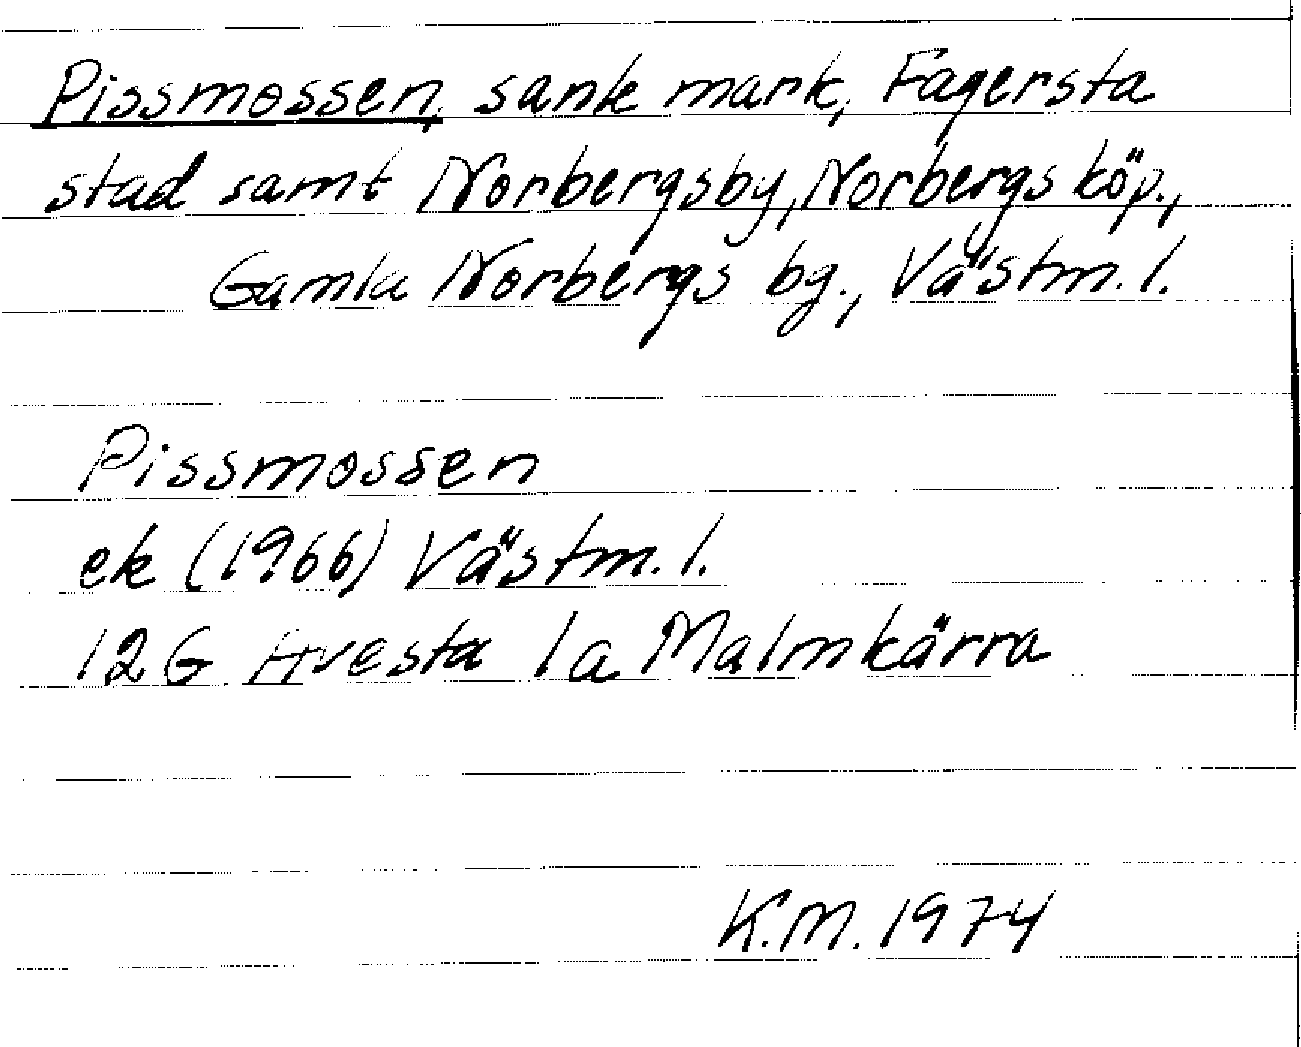 Pissmossen, sank mark, Fagersta
stad samt Norbergsby, Norbergs köp.,
Gamla Norbergs bg., Västm. l.
Pissmossen
ek (1966) Västm. l.
12G Avesta 1a Malmkärra
K.M. 1974